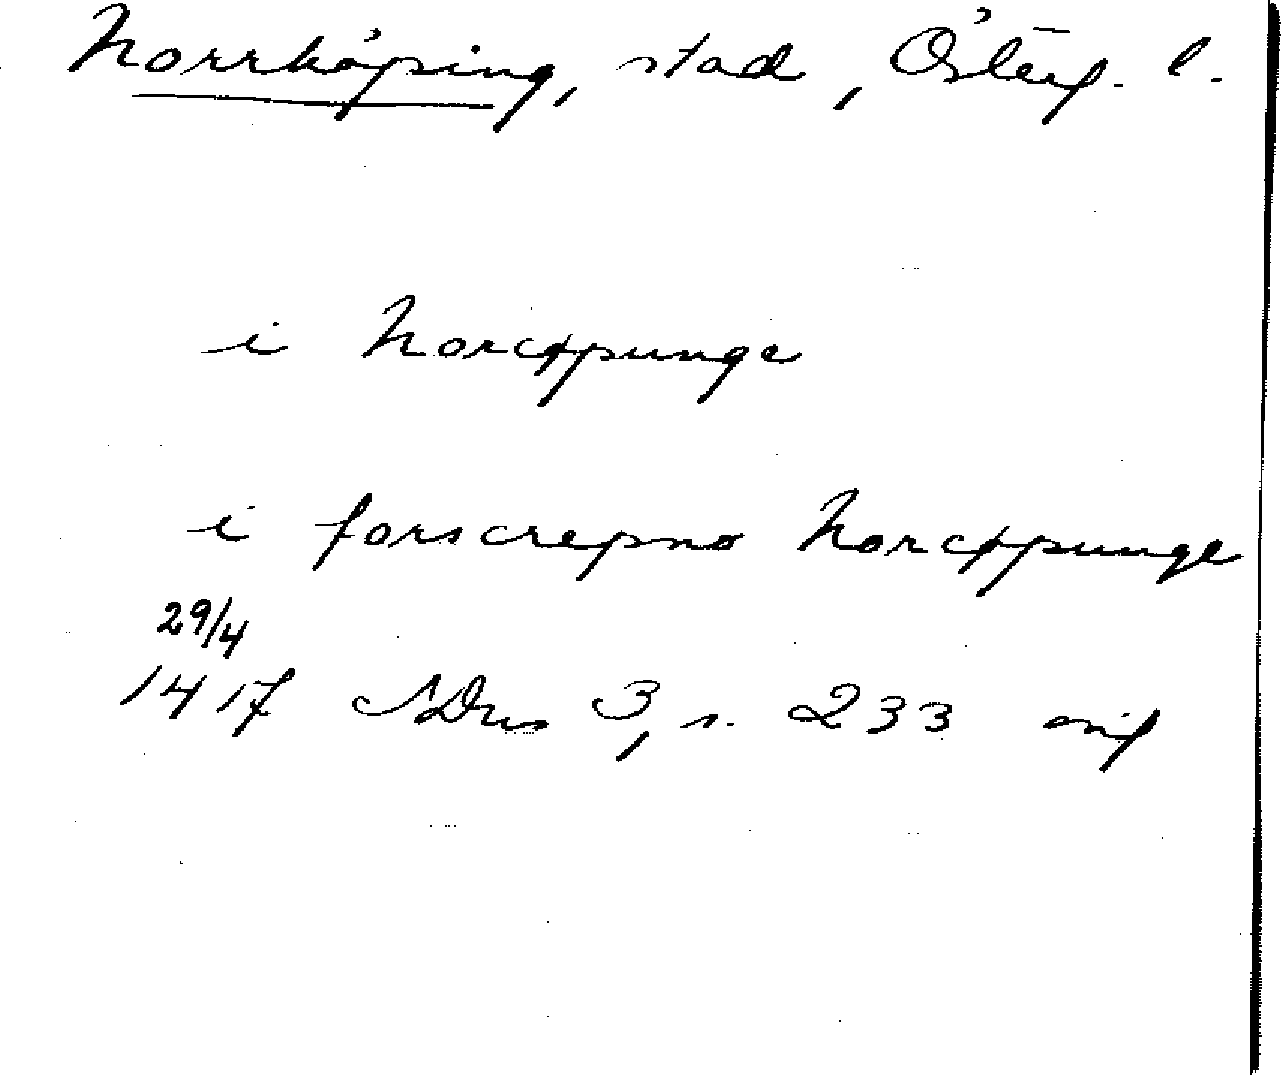 Norrköping, stad, Österg. l.
i Norcøpunge
i forscrepno Norcøppunge
29/4
1417 SDns 3, s. 233 orig